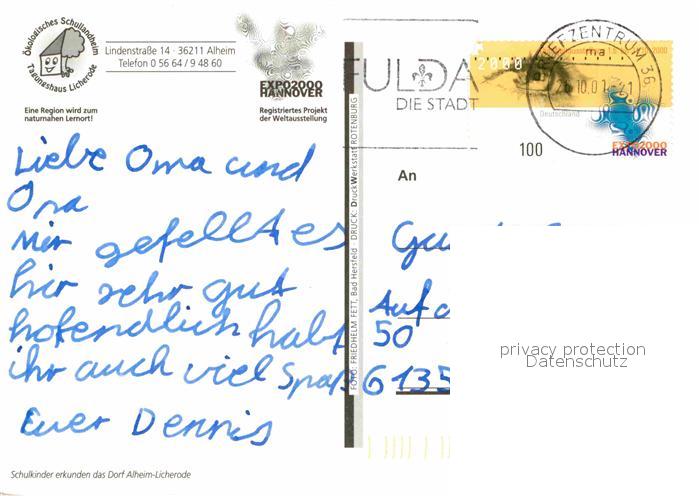 Ökologisches Schullandheim
Tagungshaus Licherode
Lindenstraße 14 · 36211 Alheim
Telefon 0 56 64 / 9 48 60
EXPO2000
HANNOVER
Eine Region wird zum
naturnahen Lernort!
Registriertes Projekt
der Weltausstellung
FULDA
DIE STADT
BRIEFZENTRUM 36
ma
2000
Deutschland
100
EXPO2000
HANNOVER
Liebe Oma und
Opa
Mir gefellt es
hir sehr gut
hofendlich habt
ihr auch viel Spaß
Euer Dennis
FOTO: FRIEDHELM FETT, Bad Hersfeld · DRUCK: DruckWerkstatt ROTENBURG
An
Auf d
50
6135
privacy protection
Datenschutz
Schulkinder erkunden das Dorf Alheim-Licherode